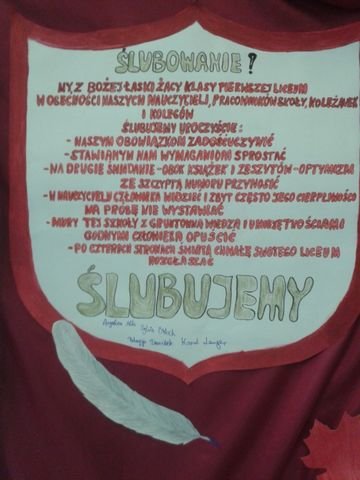 ŚLUBOWANIE!
MY, Z BOŻEJ ŁASKI ŻACY KLASY PIERWSZEJ LICEUM
W OBECNOŚCI NASZYCH NAUCZYCIELI, PRACOWNIKÓW SZKOŁY, KOLEŻANEK
I KOLEGÓW
ŚLUBUJEMY UROCZYŚCIE:
- NASZYM OBOWIĄZKOM ZADOŚĆUCZYNIĆ
- STAWIANYM NAM WYMAGANIOM SPROSTAĆ
- NA DRUGIE ŚNIADANIE - OBOK KSIĄŻEK I ZESZYTÓW - OPTYMIZM
ZE SZCZYPTĄ HUMORU PRZYNOSIĆ
- W NAUCZYCIELU CZŁOWIEKA WIDZIEĆ I ZBYT CZĘSTO JEGO CIERPLIWOŚCI
NA PRÓBĘ NIE WYSTAWIAĆ
- MURY TEJ SZKOŁY Z GRUNTOWNĄ WIEDZĄ I UMIEJĘTNOŚCIAMI
GODNYMI CZŁOWIEKA OPUŚCIĆ
- PO CZTERECH STRONACH ŚWIATA CHWAŁĘ SWOJEGO LICEUM
ROZGŁASZAĆ
ŚLUBUJEMY
Karol